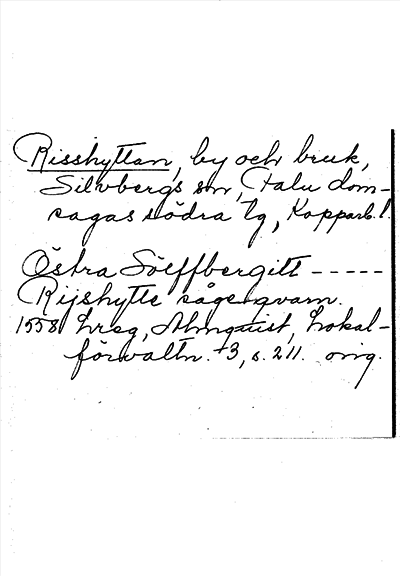 Risshyttan, by och bruk,
Silvbergs sn, Falu dom-
sagas södra tg, Kopparb. l.
Östra Söllfbergitt -----
Rijshytte sågeqvarn.
1558 hrsg, Almquist, Lokal-
förvaltn. +3, s. 211. orig.